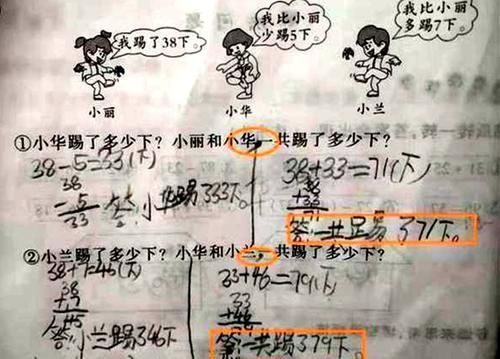 我踢了38下。
我比小丽
少踢5下。
我比小丽
多踢7下。
小丽 小华 小兰
①小华踢了多少下?小丽和小华一共踢了多少下?
38-5=33(下) 38+33=71(下)
38 38
-5 +33
33 71
答:小华踢了33下。 答:一共足易了71下。
②小兰踢了多少下?小华和小兰,共踢了多少下?
38+7=45(下) 33+46=79(下)
38 33
+7 +46
答:小兰踢346下 答:一共踢了79下。